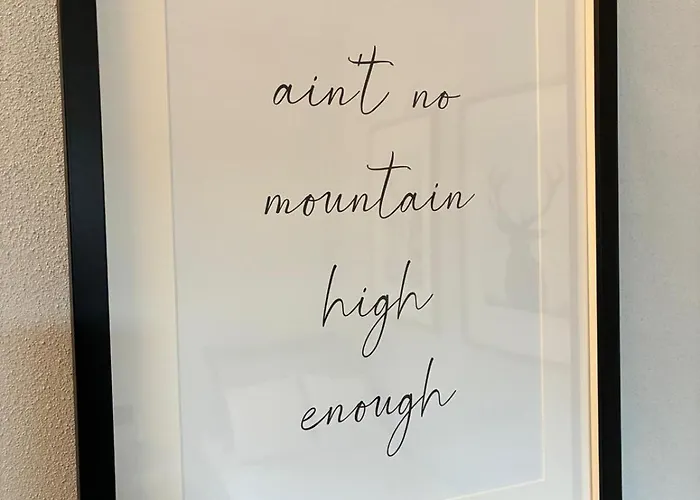 aint no
mountain
high
enough